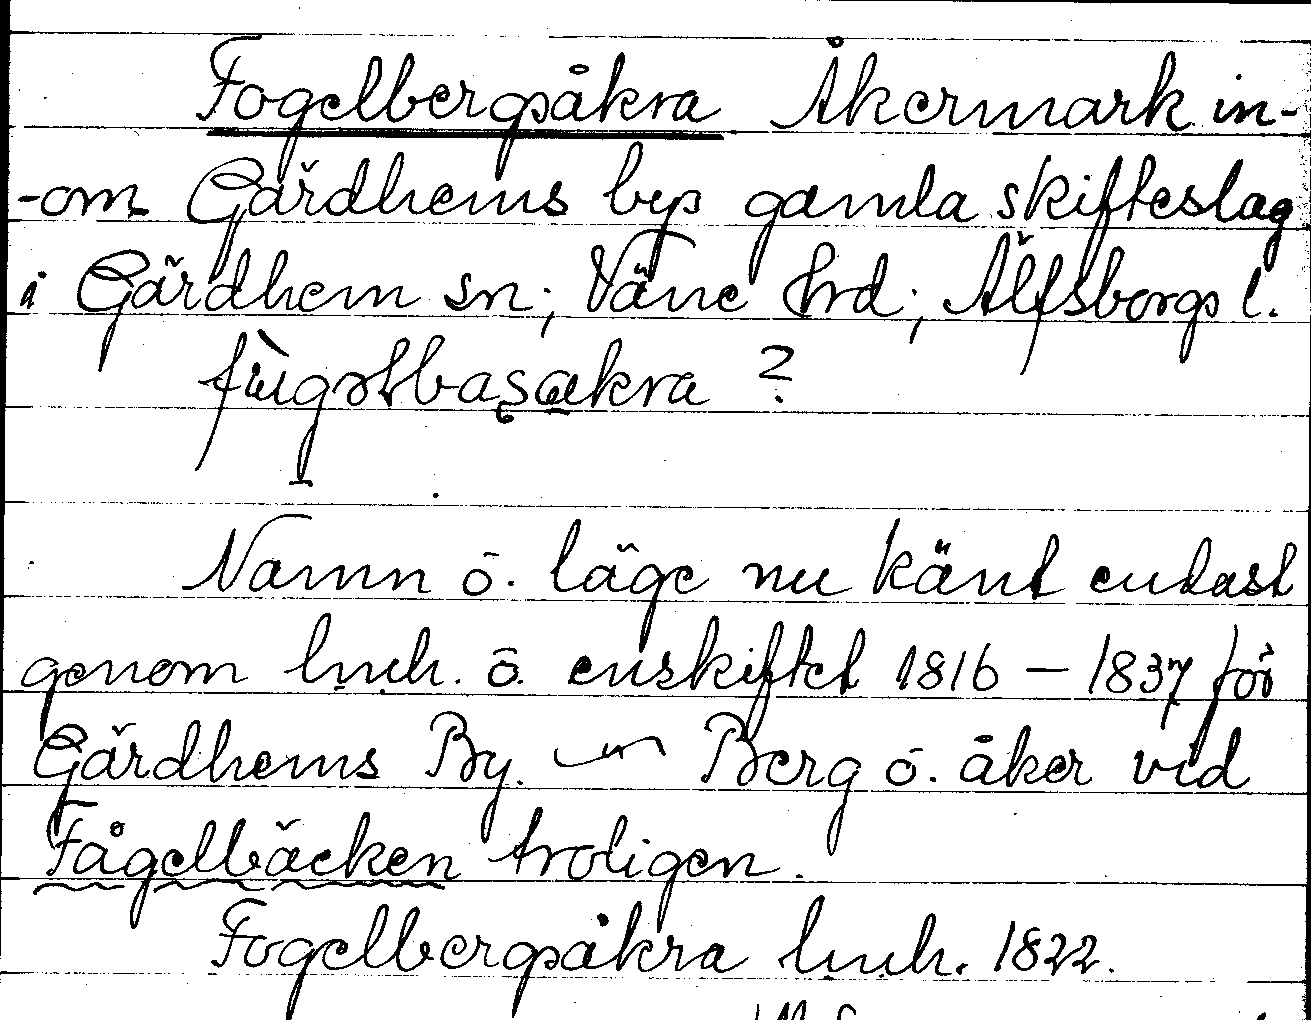 Fogelbergsåkra Åkermark in-
-om Gärdhems bys gamla skifteslag
i Gärdhem sn; Väne hrd; Älfsborgs l.
?
Namn o. läge nu känt endast
genom lmh. o. enskiftet 1816 – 1837 för
Gärdhems By. — Berg o. åker vid
Fågelbäcken troligen.
Fogelbergsåkra lmh. 1822.